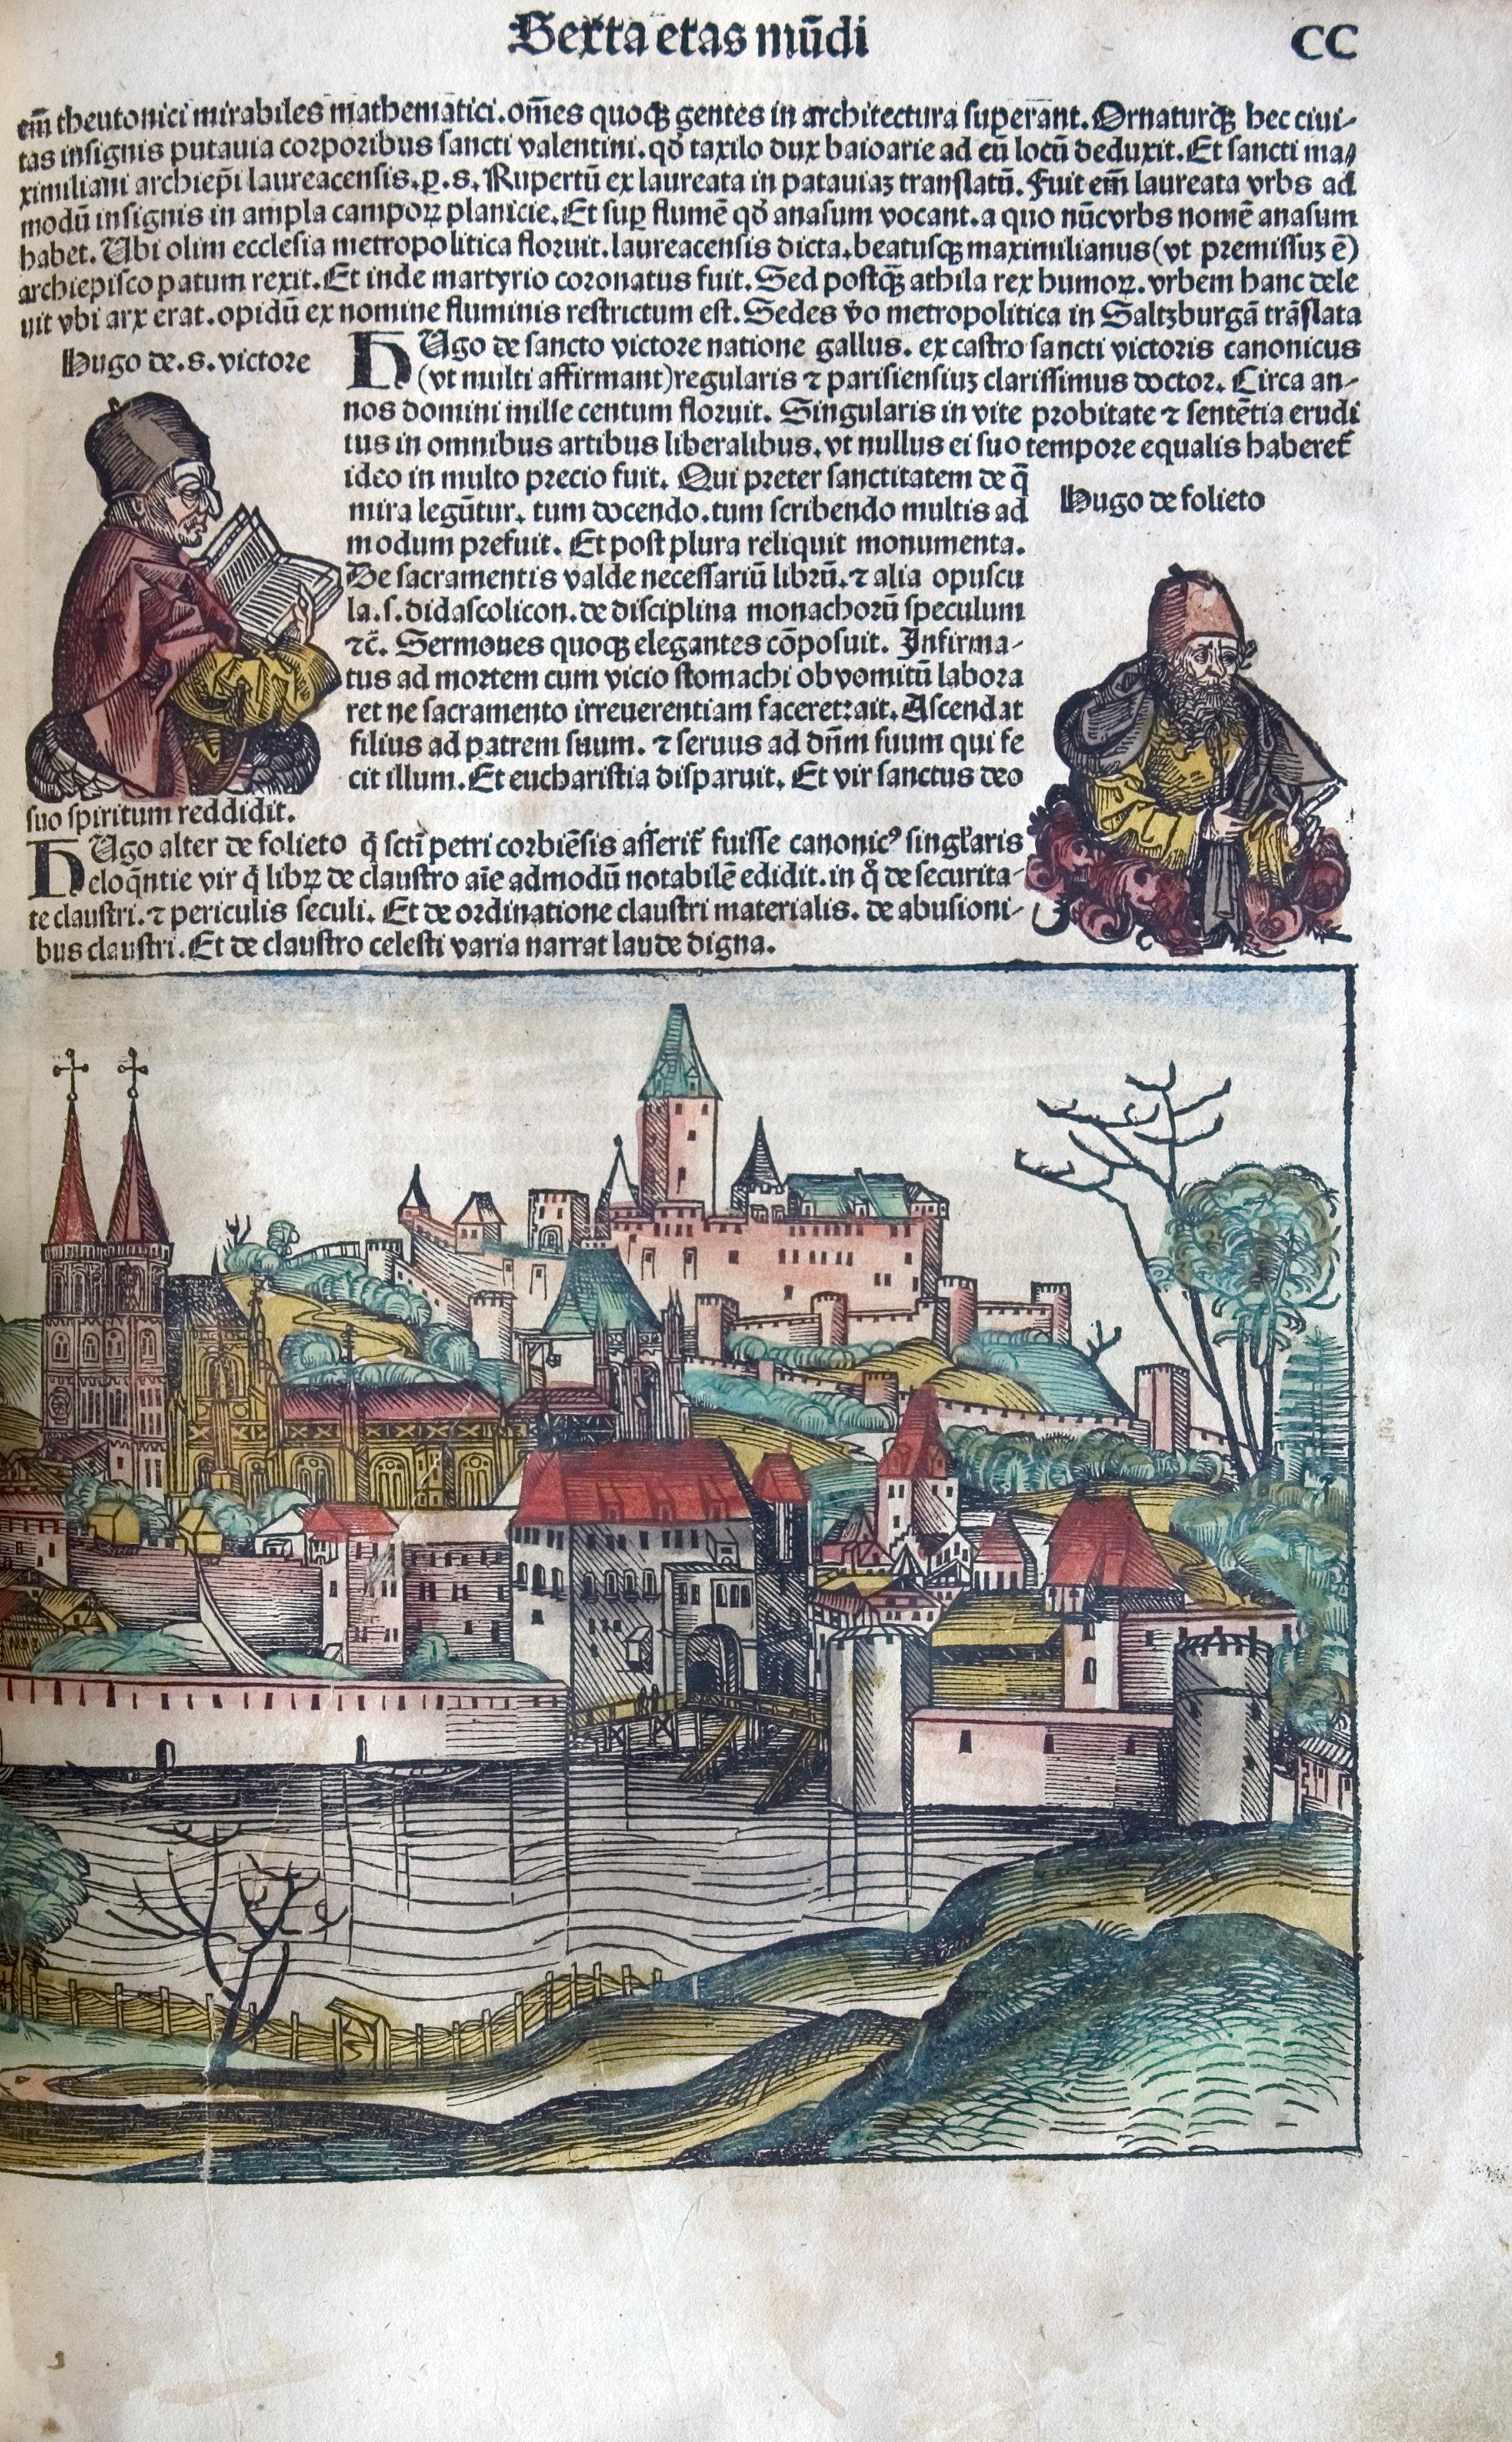 Sexta etas mūdi
CC
em̄ theutonici mirabiles mathematici. om̄es quoqꝫ gentes in architectura superant. Ornaturqꝫ hec ciui-
tas insignis putauia corporibus sancti valentini. qd̄ taxilo dux baioarie ad eū locū deduxit. Et sancti ma-
ximiliani archiep̄i laureacensis. p. s. Rupertū ex laureata in patauiaꝫ translatū. Fuit em̄ laureata vrbs ad
modū insignis in ampla campoꝝ planicie. Et suꝑ flumē qd̄ anasum vocant. a quo nūc vrbs nomē anasum
habet. Ubi olim ecclesia metropolitica floruit. laureacensis dicta. beatusqꝫ maximilianus (vt premissuꝫ ē)
archiepiscopatum rexit. Et inde martyrio coronatus fuit. Sed postqꝫ̄ athila rex humoꝝ. vrbem hanc dele
uit vbi arx erat. opidū ex nomine fluminis restrictum est. Sedes v̄o metropolitica in Saltzburgā trāslata
Hugo de. s. victore
HUgo de sancto victore natione gallus. ex castro sancti victoris canonicus
(vt multi affirmant) regularis ⁊ parisiensiuꝫ clarissimus doctor. Circa an-
nos domini mille centum floruit. Singularis in vite probitate ⁊ sentētia erudi
tus in omnibus artibus liberalibus. vt nullus ei suo tempore equalis haberet̄
ideo in multo precio fuit. Qui preter sanctitatem de q̄
mira legūtur. tum docendo. tum scribendo multis ad
modum prefuit. Et post plura reliquit monumenta.
De sacramentis valde necessariū librū. ⁊ alia opuscu
la. s. didascolicon. de disciplina monachorū speculum
⁊c̄. Sermones quoqꝫ elegantes cōposuit. Infirma-
tus ad mortem cum vicio stomachi ob vomitū labora
ret ne sacramento irreuerentiam faceret: ait. Ascendat
filius ad patrem suum. ⁊ seruus ad dn̄m suum qui fe
cit illum. Et eucharistia disparuit. Et vir sanctus deo
suo spiritum reddidit.
Hugo de folieto
HUgo alter de folieto q̄ scti petri corbiēsis asserit̄ fuisse canonicꝰ singl̄aris
eloq̄ntie vir q̄ libꝝ de claustro aīe admodū notabilē edidit. in q̊ de securita-
te claustri. ⁊ periculis seculi. Et de ordinatione claustri materialis. de abusioni-
bus claustri. Et de claustro celesti varia narrat laude digna.